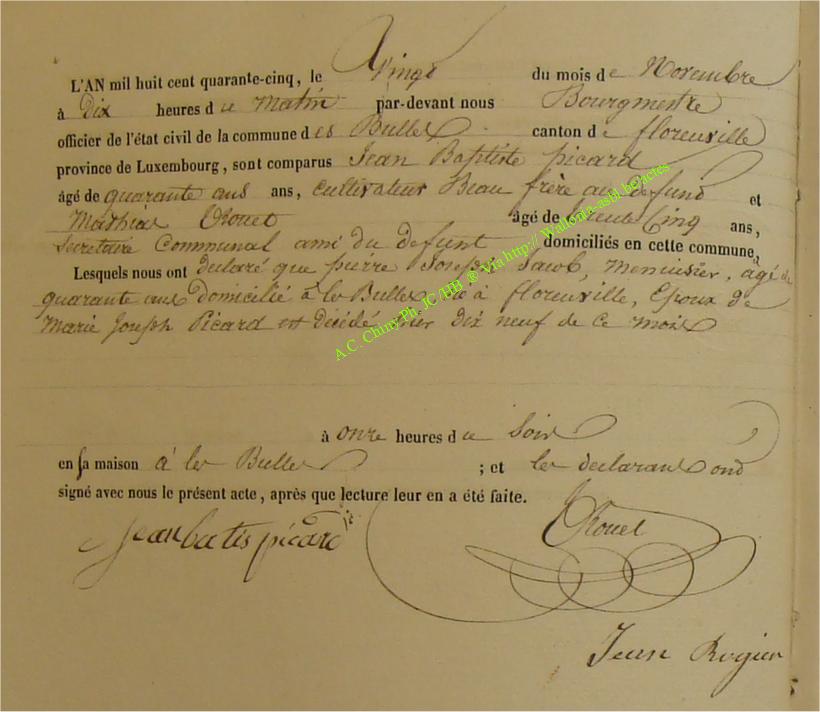 L'AN mil huit cent quarante-cinq, le vingt du mois de Novembre
à Dix heures du Matin par-devant nous Bourgmestre
officier de l'état civil de la commune des Bulles canton de florenville
province de Luxembourg, sont comparus Jean Baptiste picard
âgé de quarante ans ans, cultivateur Beau frère au defunt et
Mathias âgé de trente Cinq ans,
Secretaire Communal ami du defunt domiciliés en cette commune,
Lesquels nous ont declaré que pierre Joseph Jacob, Menuisier, agé de
quarante ans domicilié à les Bulles né à florenville, Epoux de
Marie Joseph Picard est Décédé hier dix neuf de ce mois
à onze heures du Soir
en sa maison à les Bulles ; et les declarant ont
signé avec nous le présent acte, après que lecture leur en a été faite.
Jean batis picard
Jean Rogier
A.C. Chiny Ph. IC /HB ® Via http:// Wallonia-asbl.be/actes